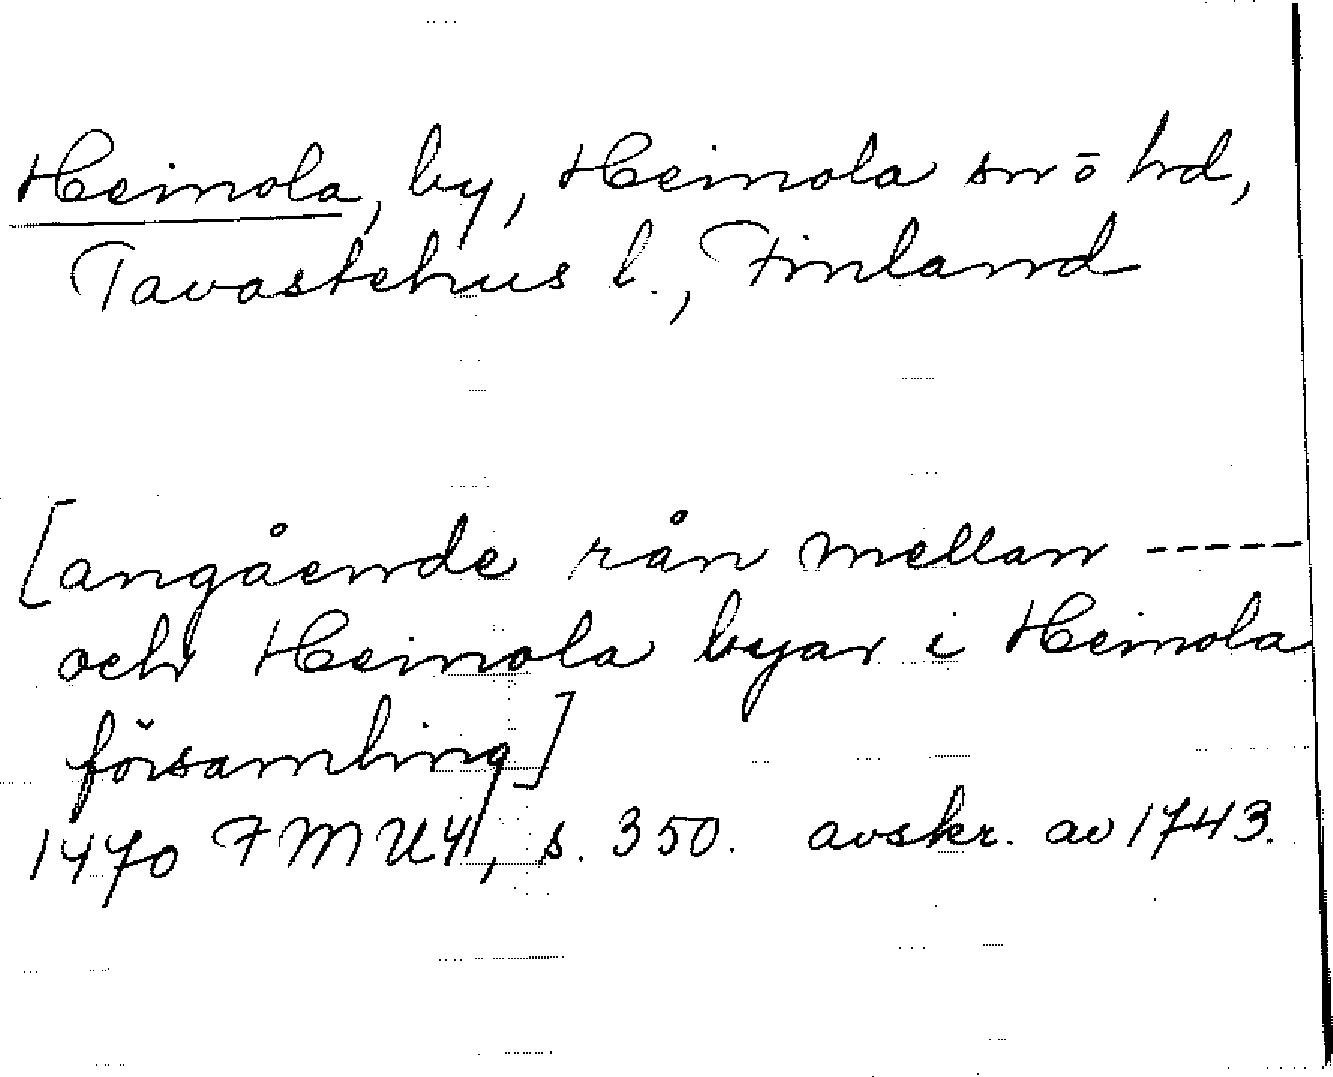 Heinola, by, Heinola sn o hd,
Tavastehus l., Finland
[angående rån mellan -----
och Heinola byar i Heinola
församling]
1470 FMU 4, s. 350. avskr. av 1743.